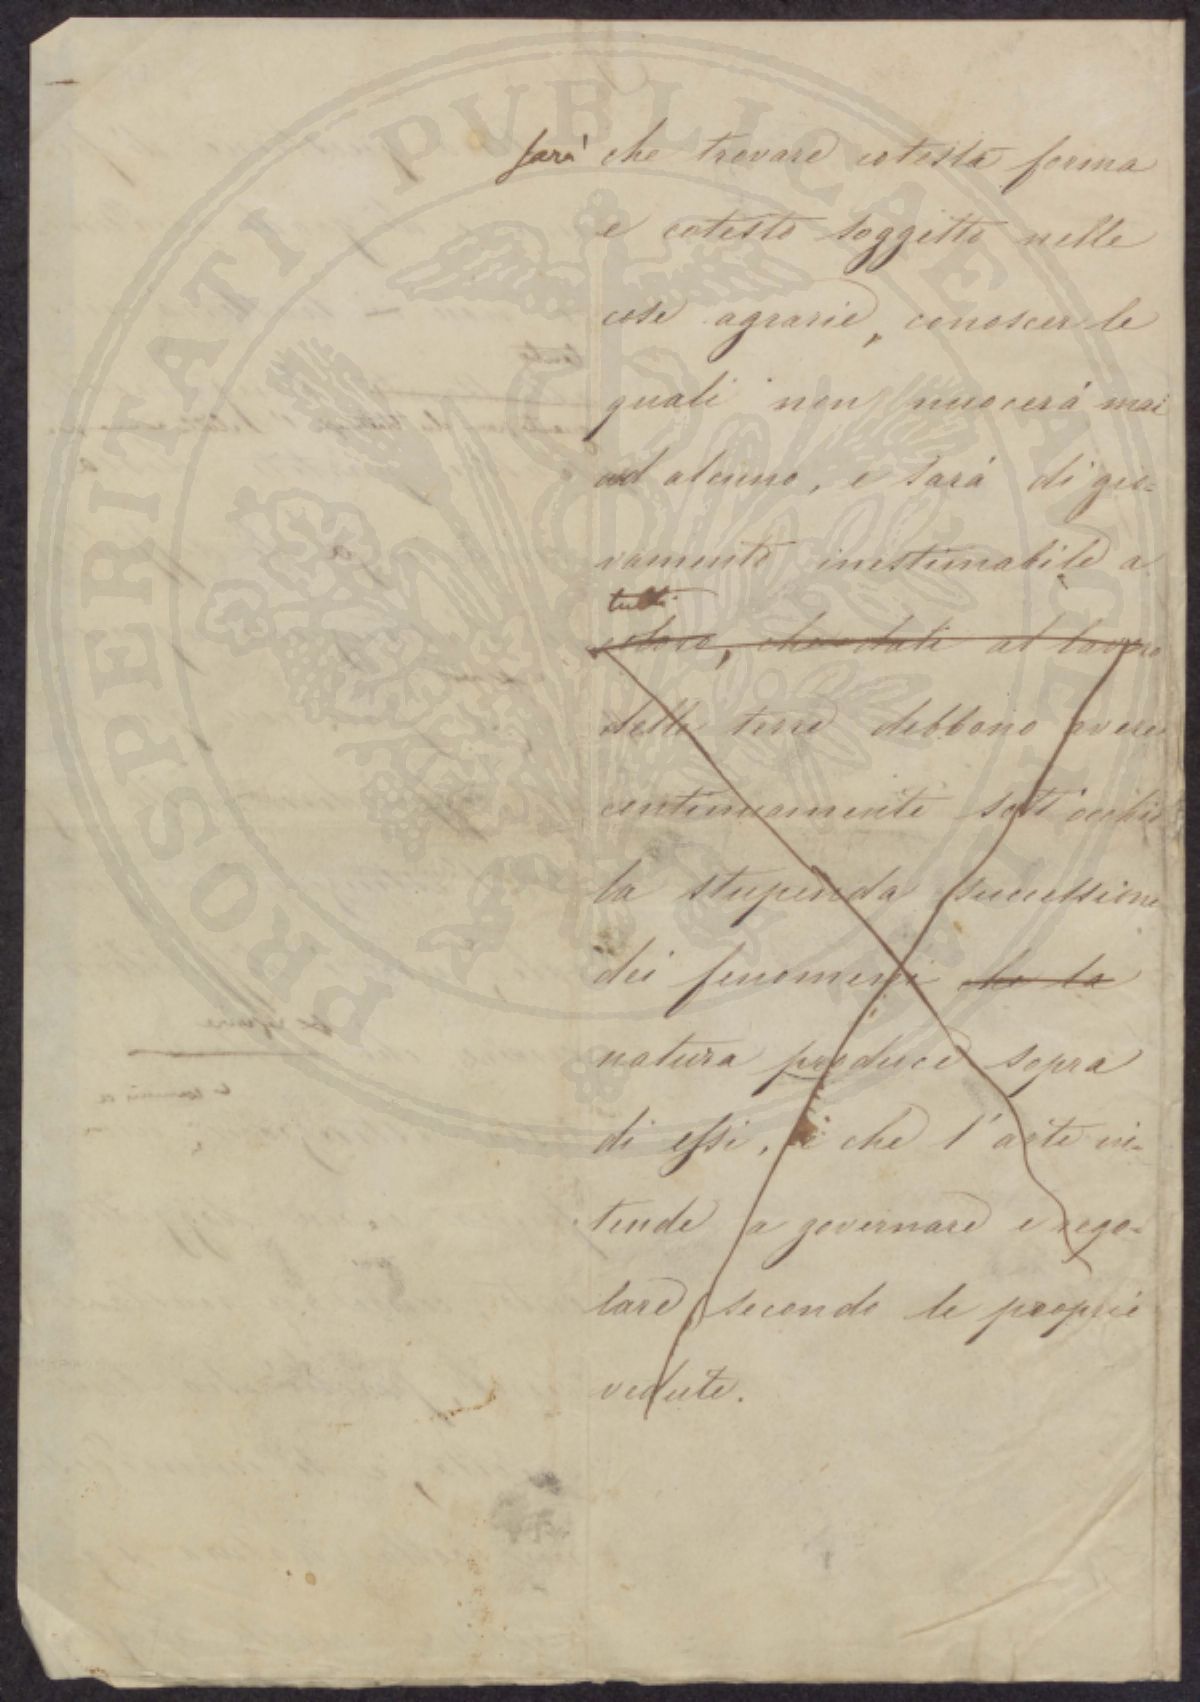 PROSPERITATI PUBLICAE AUGENDAE
sarà che trovare cotesta forma
e cotesto soggetto nelle
cose agrarie, conoscer le
quali non nuocerà mai
ad alcuno, e sarà di gio-
vamento inestimabile a
tutti
coloro, che dati al lavoro
delle terre debbono avere
continuamente sott'occhio
la stupenda successione
dei fenomeni che la
natura produce sopra
di essi, e che l'arte in-
tende a governare e rego-
lare secondo le proprie
vedute.